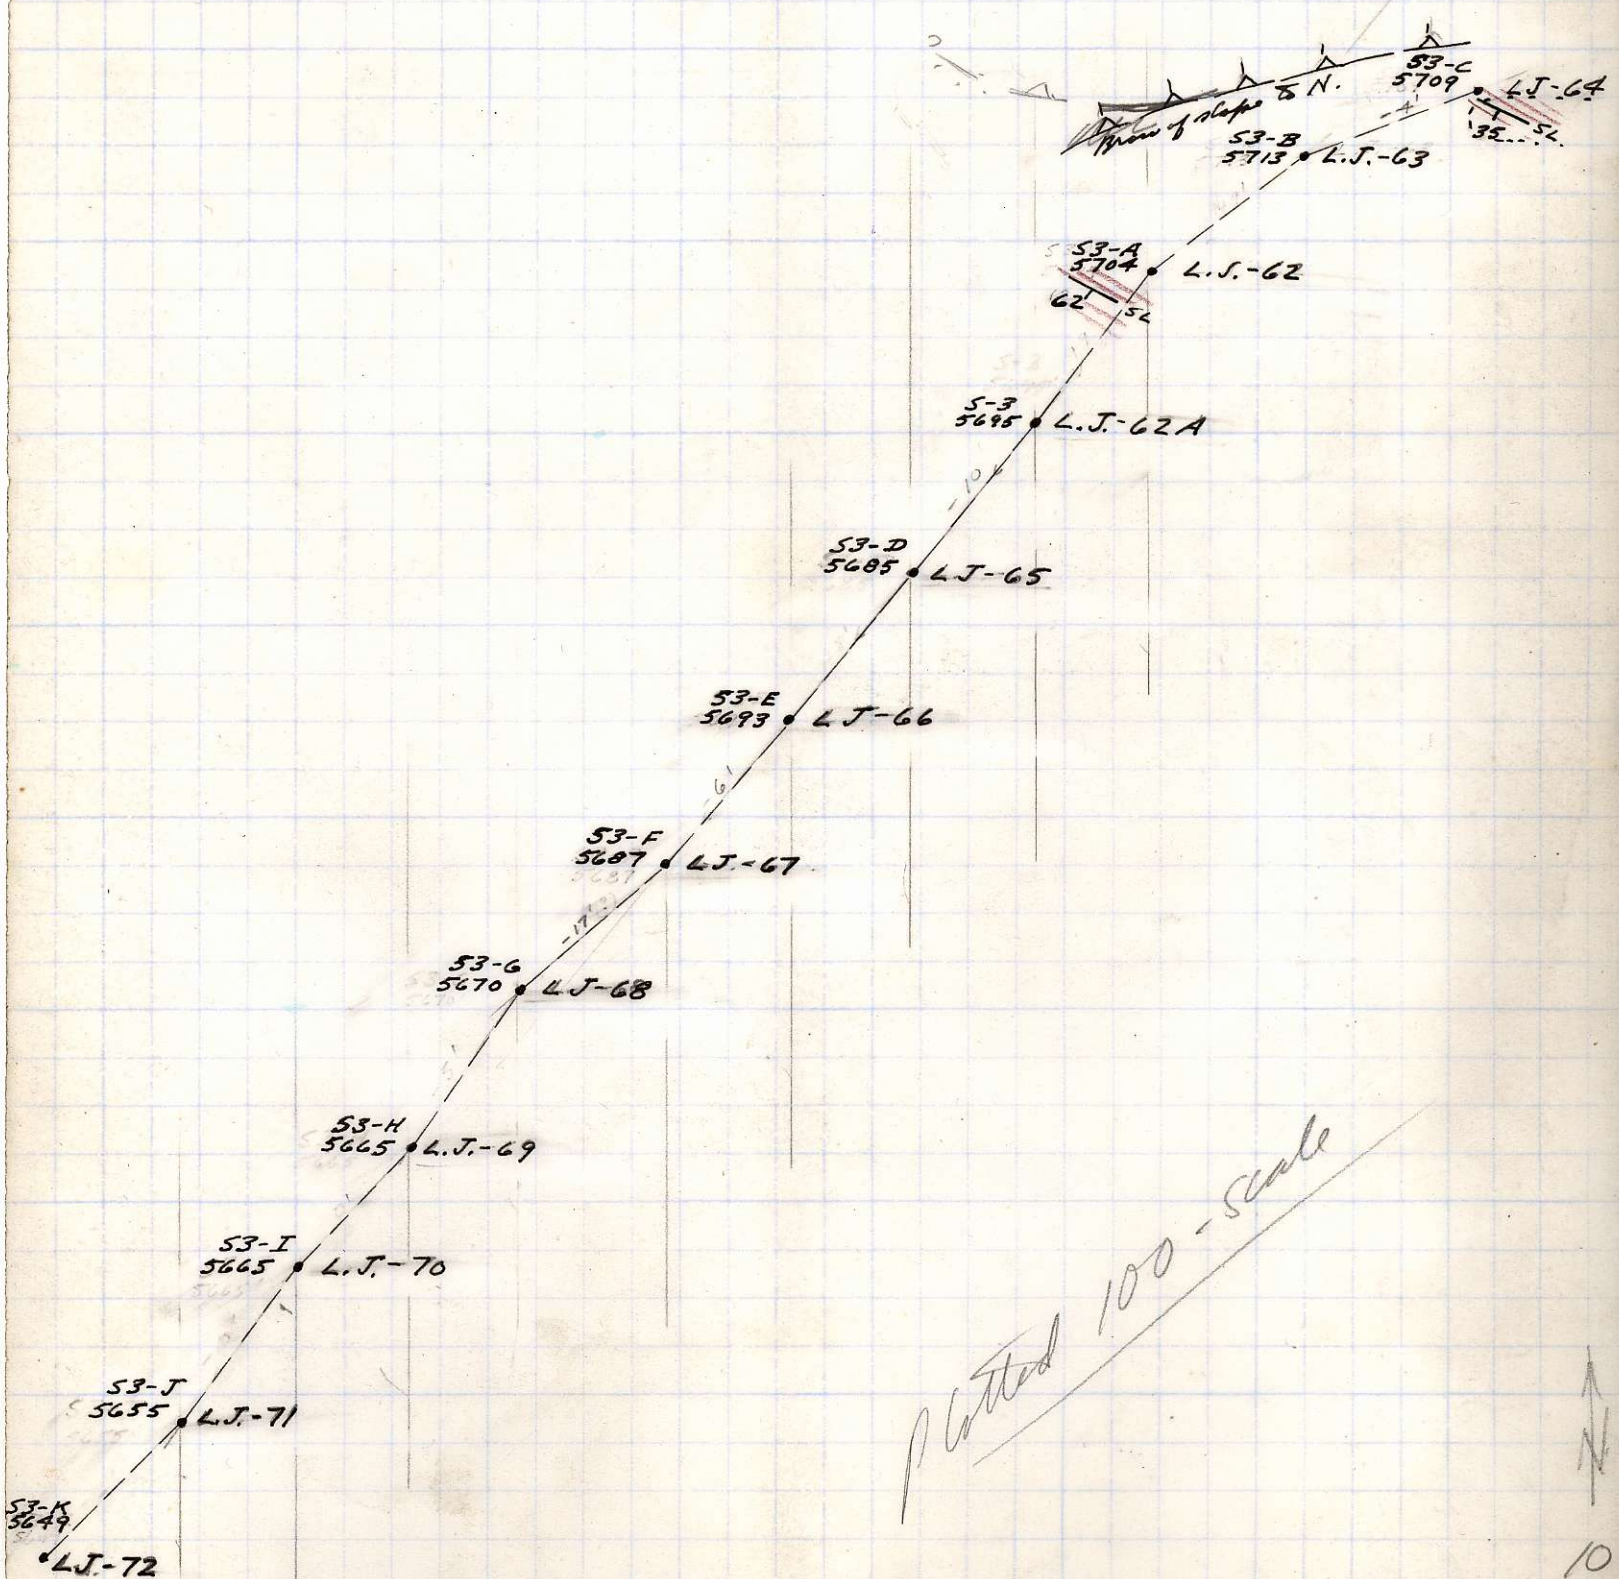 53-C
5709 LJ-64
-4'
35 SL
Brow of slope to N.
53-B
5713 L.J.-63
53-A
5704 L.J.-62
62 SL
S-3
5695 L.J.-62A
-10'
53-D
5685 LJ-65
53-E
5693 LJ-66
-6'
53-F
5687 LJ.-67
-17'(?)
53-G
5670 LJ-68
53-H
5665 L.J.-69
53-I
5665 L.J.-70
53-J
5655 L.J.-71
53-K
5649
LJ.-72
Plotted 100-scale
N
10